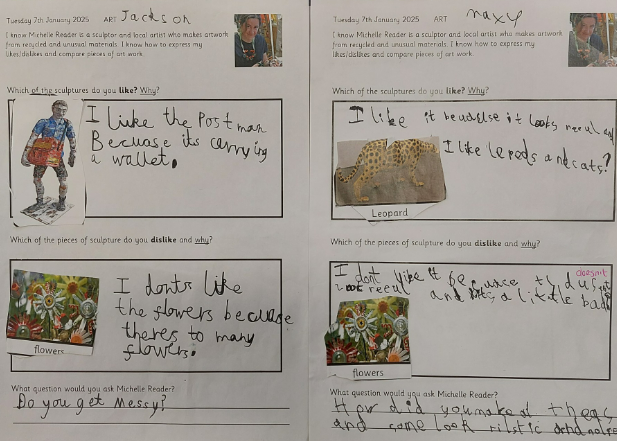 Tuesday 7th January 2025 ART Jackson
I know Michelle Reader is a sculptor and local artist who makes artwork
from recycled and unusual materials. I know how to express my
likes/dislikes and compare pieces of art work.
Which of the sculptures do you like? Why?
I liuke the Post man
Becuase its carrying
a wallet.
Which of the pieces of sculpture do you dislike and why?
I donts like
the flowers because
theres to many
flowers.
flowers
What question would you ask Michelle Reader?
Do you get Messy?
Tuesday 7th January 2025 ART maxy
I know Michelle Reader is a sculptor and local artist who makes artwork
from recycled and unusual materials. I know how to express my
likes/dislikes and compare pieces of art work.
Which of the sculptures do you like? Why?
I like it it looks and
I like and cats?
Leopard
Which of the pieces of sculpture do you dislike and why?
doesn't
I dont like it
not and its a little bad
flowers
What question would you ask Michelle Reader?
How did you
and some look